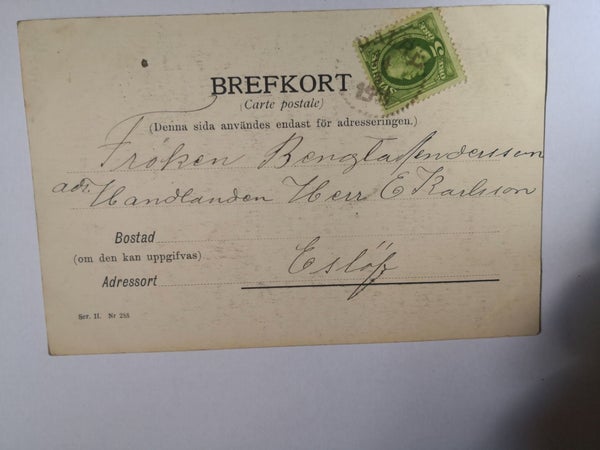 BREFKORT
(Carte postale)
(Denna sida användes endast för adresseringen.)
Fröken Bengta Andersson
adr. Handlanden Herr E Karlsson
Bostad
(om den kan uppgifvas)
Eslöf
Adressort
Ser. 11. Nr 288